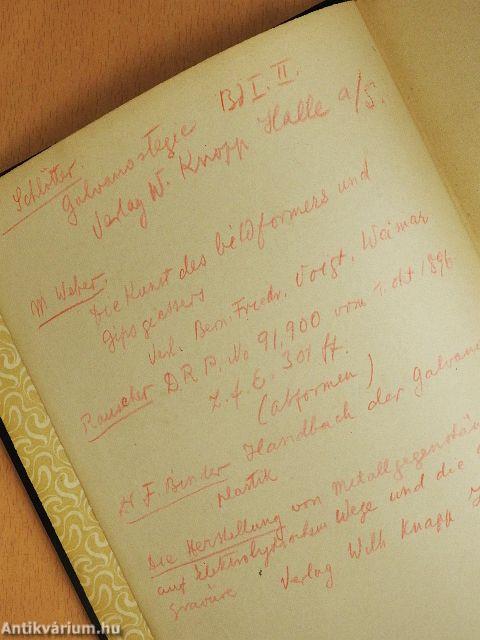 Schlötter.
Galvanostegie Bd I. II.
Verlag W. Knapp Halle a/S.
M. Weber
Die Kunst des bildformers und
Gipsgiessers
Verl. Bern. Friedr. Voigt, Weimar
Rauscher D R P. No 91,900 vom 1. Okt 1896
Z. f. E. 301 ff.
(abformen)
H F. Binder Handbuch der Galvano
plastik
Die Herstellung von Metallgegenstän
auf Elektrolytischem Wege und die
gravüre Verlag Wilh Knapp
Antikvárium.hu